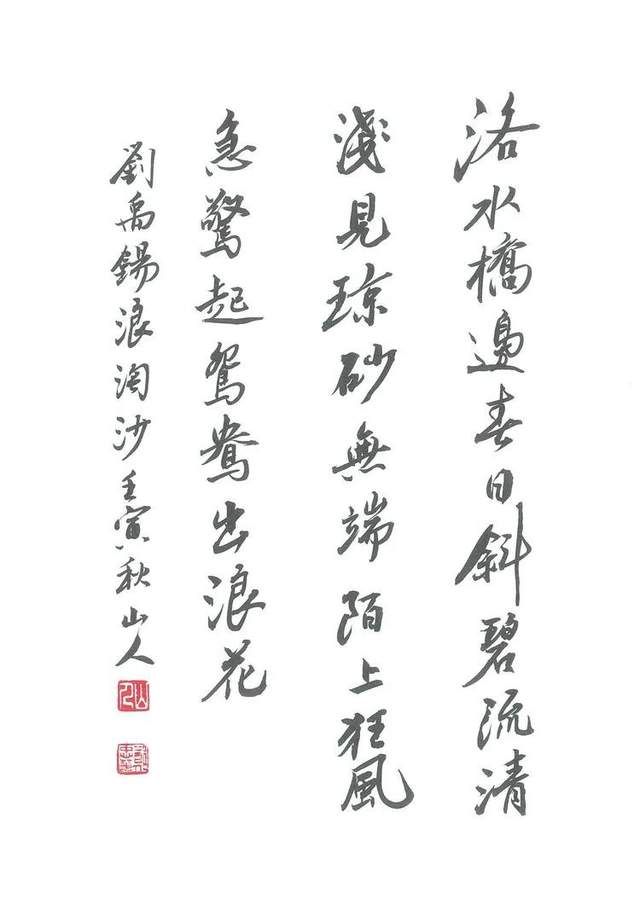 洛水橋邊春日斜碧流清
淺見琼砂無端陌上狂風
急驚起鴛鴦出浪花
劉禹錫浪淘沙壬寅秋山人
山人